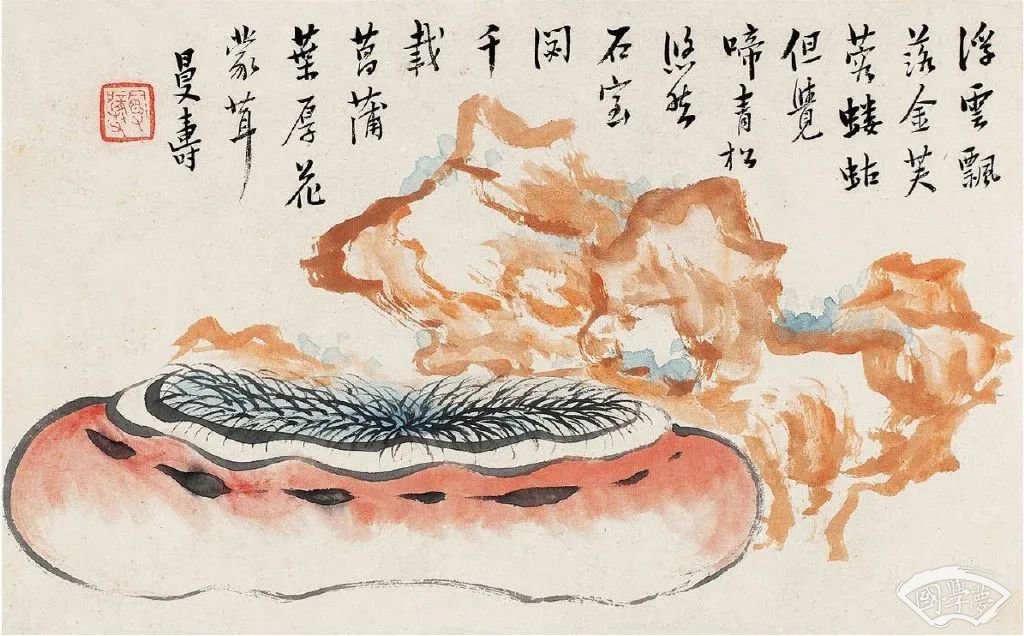 浮雲飄
落金芙
蓉螻蛄
但覺
啼青松
悠然
石室
閱
千
載
菖蒲
葉厚花
蒙茸
曼壽
國學夢